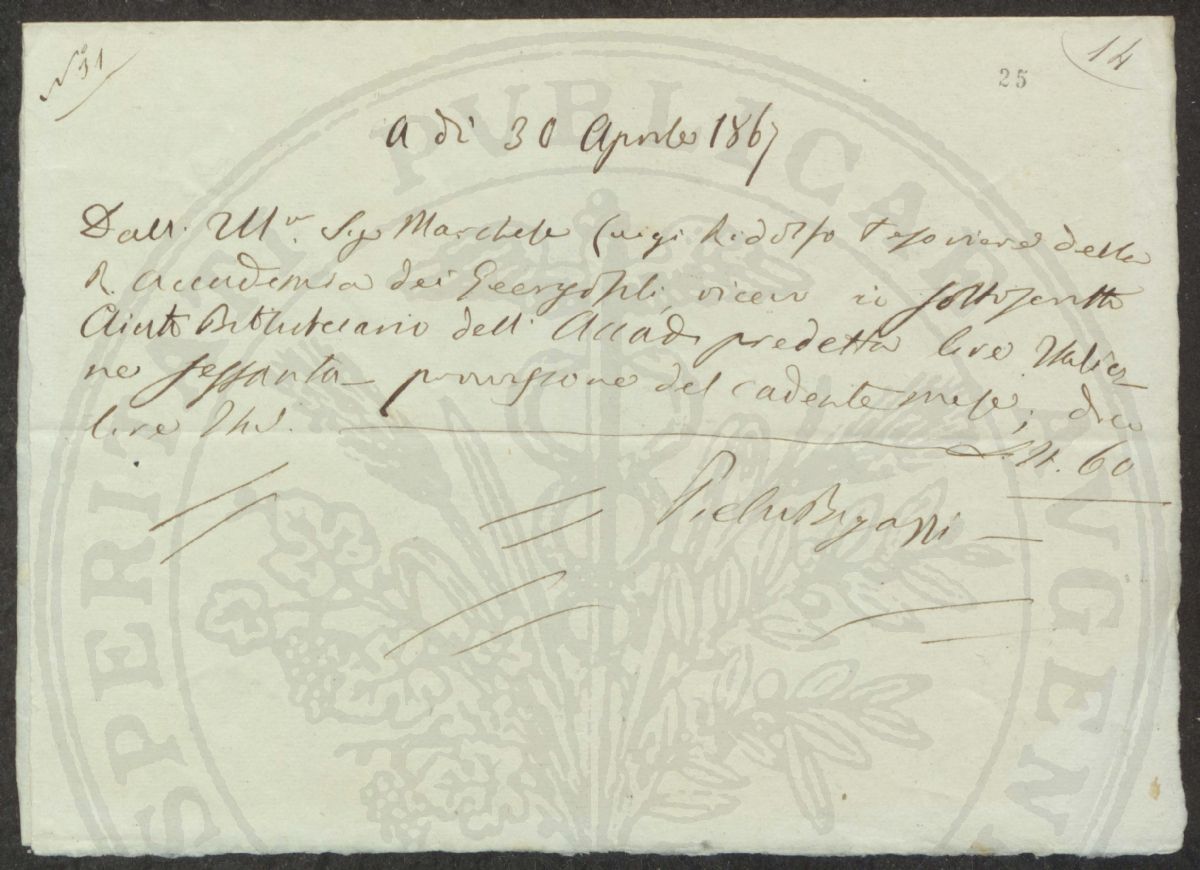 N.° 31
14
25
A dì 30 Aprile 1867
Dall. Ill.mo Sig. Marchese Luigi Ridolfo Tesoriere della
R. Accademia dei Georgofili, ricevo io sottoscritto
Aiuto Bibliotecario dell' Accad. predetta lire Italia-
ne sessanta provvisione del cadente mese; dico
lire It. 60
Pietro Bigazzi
PROSPERITATI PUBLICAE AUGEN